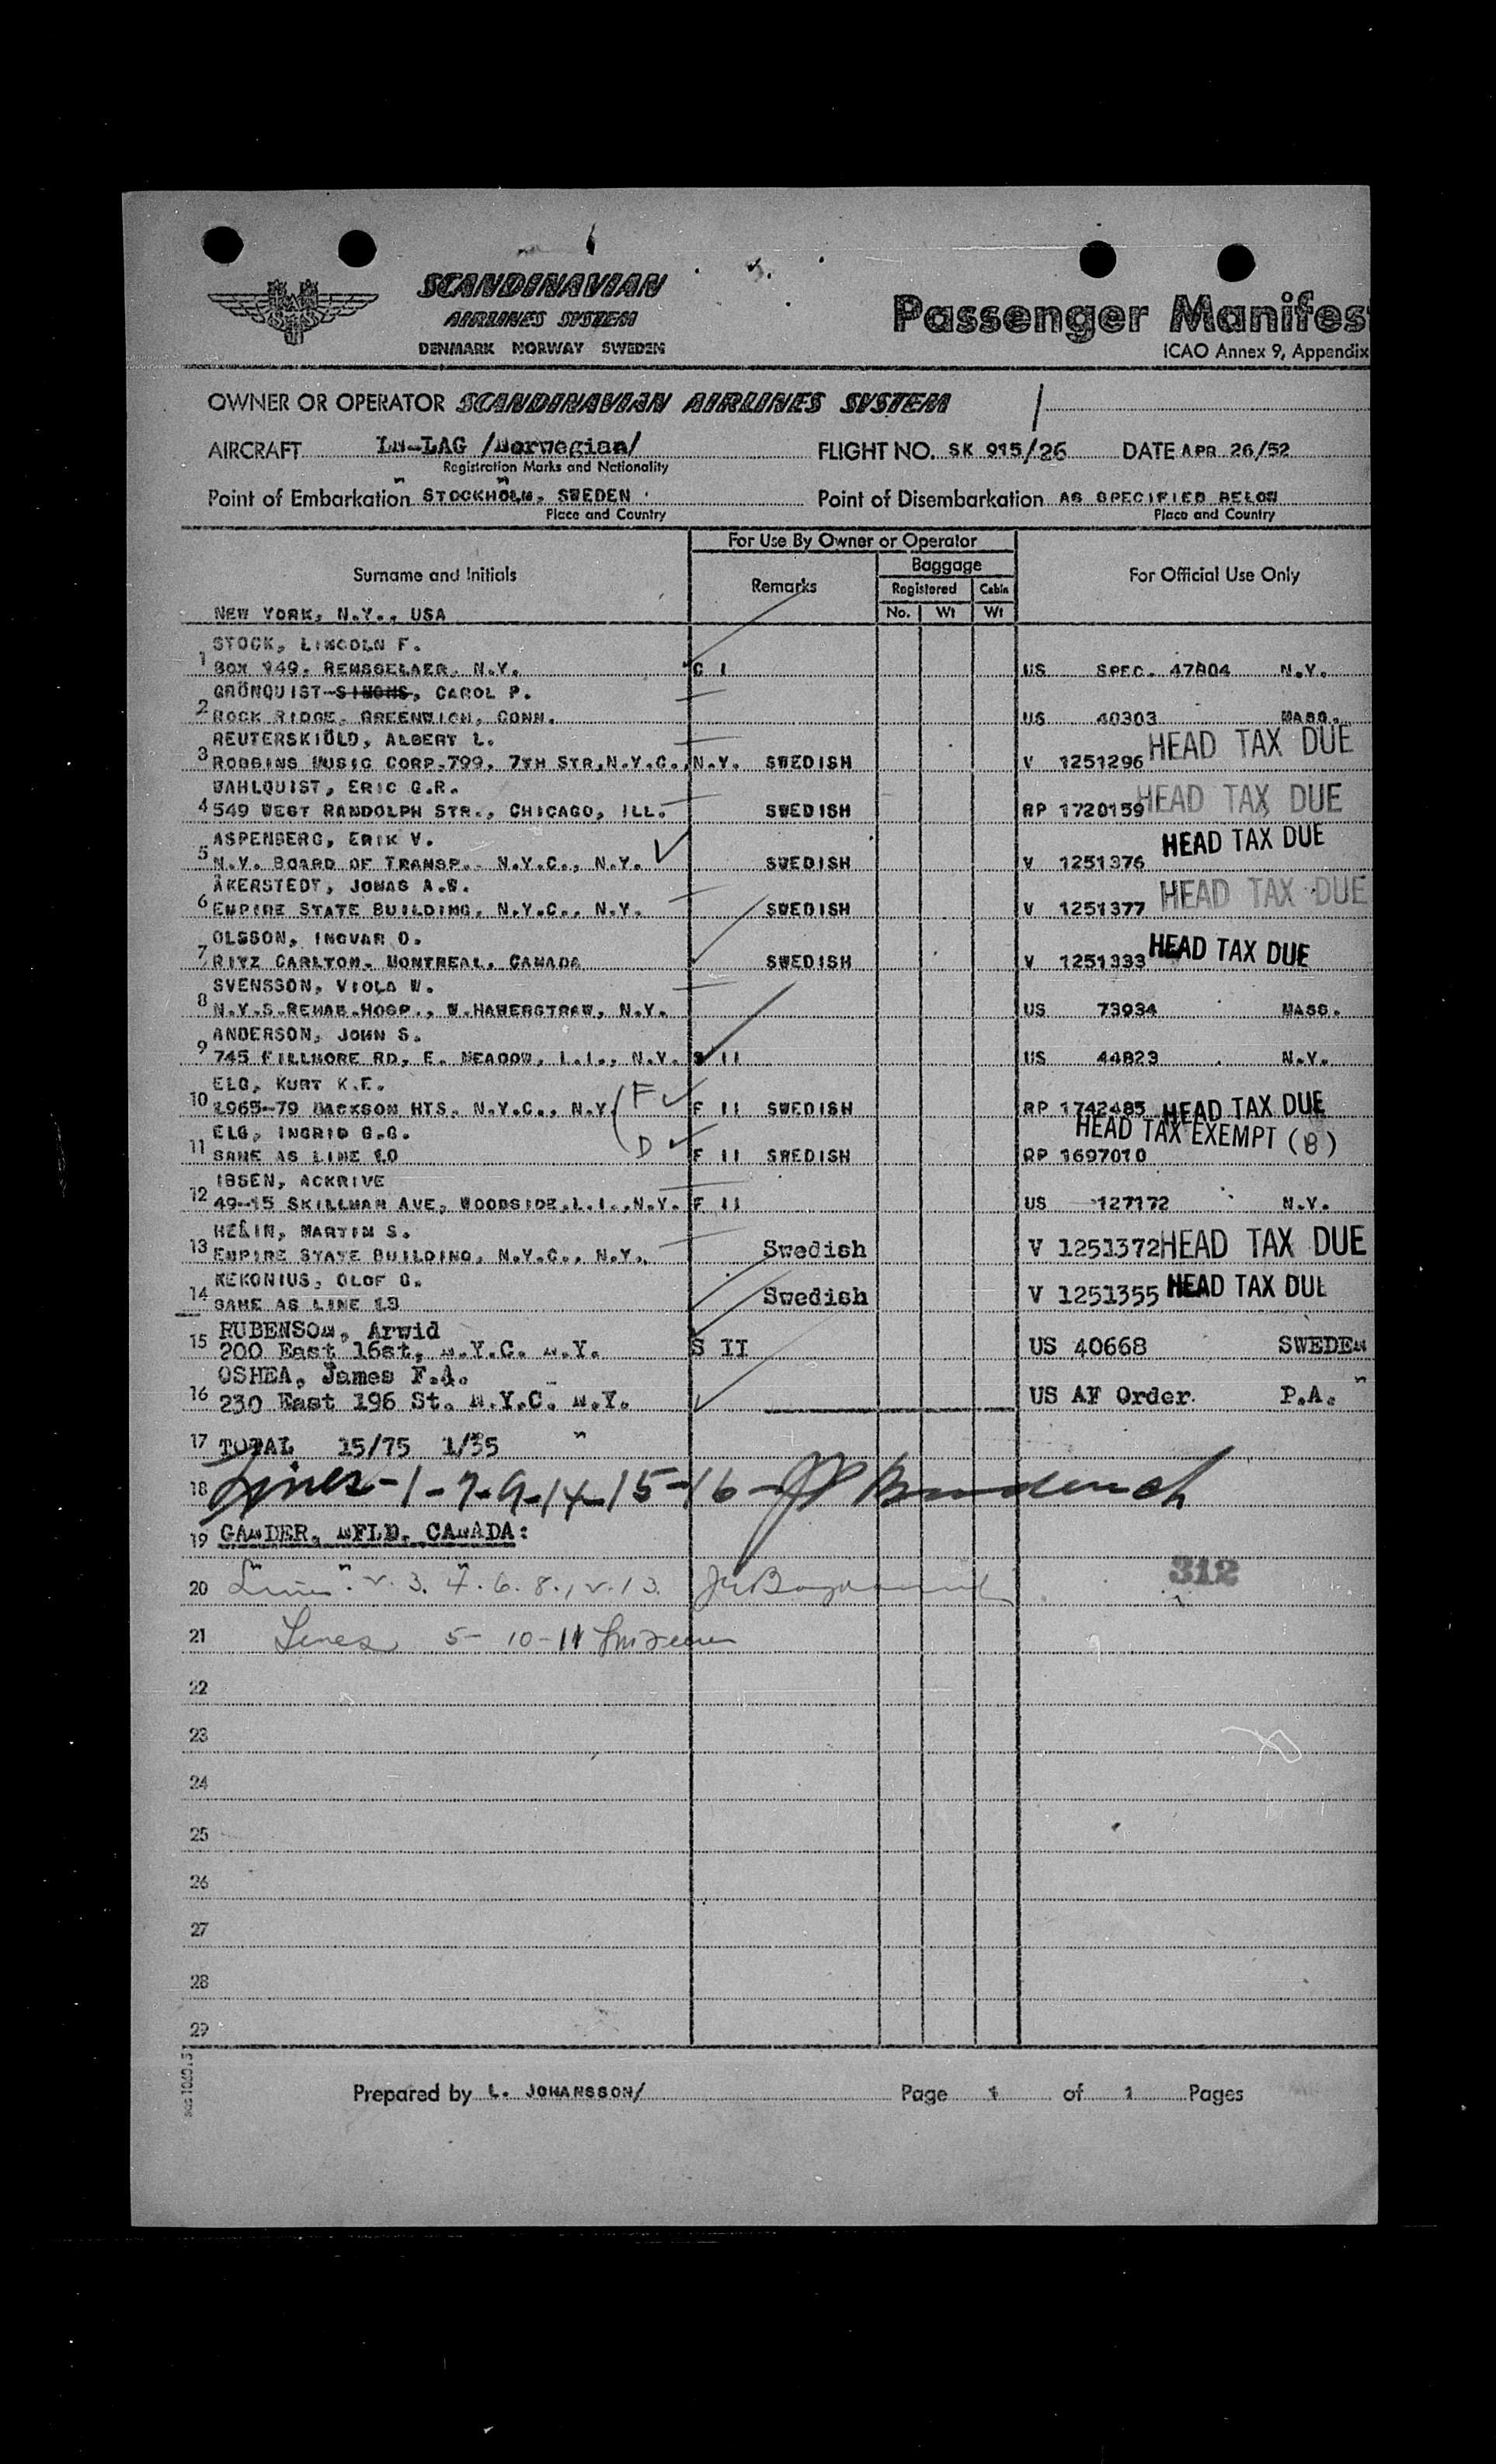 SCANDINAVIAN
AIRLINES SYSTEM
DENMARK NORWAY SWEDEN
Passenger Manifes
ICAO Annex 9, Appendix
OWNER OR OPERATOR SCANDINAVIAN AIRLINES SYSTEM
AIRCRAFT LN-LAG /Norwegian/ FLIGHT NO. SK 915/26 DATE APR 26/52
Registration Marks and Nationality
Point of Embarkation STOCKHOLM, SWEDEN Point of Disembarkation AS SPECIFIED BELOW
Place and Country Place and Country
For Use By Owner or Operator
Surname and Initials Remarks Baggage For Official Use Only
Registered Cabin
NEW YORK, N.Y., USA No. Wt Wt
STOCK, LINCOLN F.
1 BOX 149, RENSSELAER, N.Y. C I US SPEC. 47804 N.Y.
GRÖNQUIST SIMONS, CAROL P.
2 ROCK RIDGE, GREENWICH, CONN. US 40303 MASS.
REUTERSKIÖLD, ALBERT L.
3 ROBBINS MUSIC CORP.799, 7TH STR,N.Y.C.,N.Y. SWEDISH V 1251296 HEAD TAX DUE
WAHLQUIST, ERIC G.R.
4 549 WEST RANDOLPH STR., CHICAGO, ILL. SWEDISH RP 1720159 HEAD TAX DUE
ASPENBERG, ERIK V.
5 N.Y. BOARD OF TRANSP.- N.Y.C., N.Y. SWEDISH V 1251376 HEAD TAX DUE
ÅKERSTEDT, JONAS A.W.
6 EMPIRE STATE BUILDING, N.Y.C., N.Y. SWEDISH V 1251377 HEAD TAX DUE
OLSSON, INGVAR O.
7 RITZ CARLTON, MONTREAL, CANADA SWEDISH V 1251333 HEAD TAX DUE
SVENSSON, VIOLA W.
8 N.Y.S.REHAB.HOSP., W.HAWERSTRAW, N.Y. US 73934 MASS.
ANDERSON, JOHN S.
9 745 FILLMORE RD, E. MEADOW, L.I., N.Y. S II US 44823 N.Y.
ELG, KURT K.E.
10 1965-79 JACKSON HTS. N.Y.C., N.Y. F F II SWEDISH RP 1742485 HEAD TAX DUE
ELG, INGRID G.G. HEAD TAX EXEMPT (B)
11 SAME AS LINE 10 D F II SWEDISH RP 1697010
IBSEN, ACKRIVE
12 49-15 SKILLMAN AVE, WOODSIDE,L.I.,N.Y. F II US 127172 N.Y.
HELIN, MARTIN S.
13 EMPIRE STATE BUILDING, N.Y.C., N.Y. Swedish V 1251372 HEAD TAX DUE
REKONIUS, OLOF G.
14 SAME AS LINE 13 Swedish V 1251355 HEAD TAX DUE
RUBENSON, Arwid
15 200 East 16st, N.Y.C. N.Y. S II US 40668 SWEDEN
OSHEA, James F.A.
16 230 East 196 St. N.Y.C. N.Y. US AF Order. P.A.
17 TOTAL 15/75 1/35
18 Lines-1-7-9-14-15-16-
19 GANDER, NFLD, CANADA:
20 312
21 Lines 5-10-11
22
23
24
25
26
27
28
29
Prepared by L. JOHANSSON/ Page 1 of 1 Pages